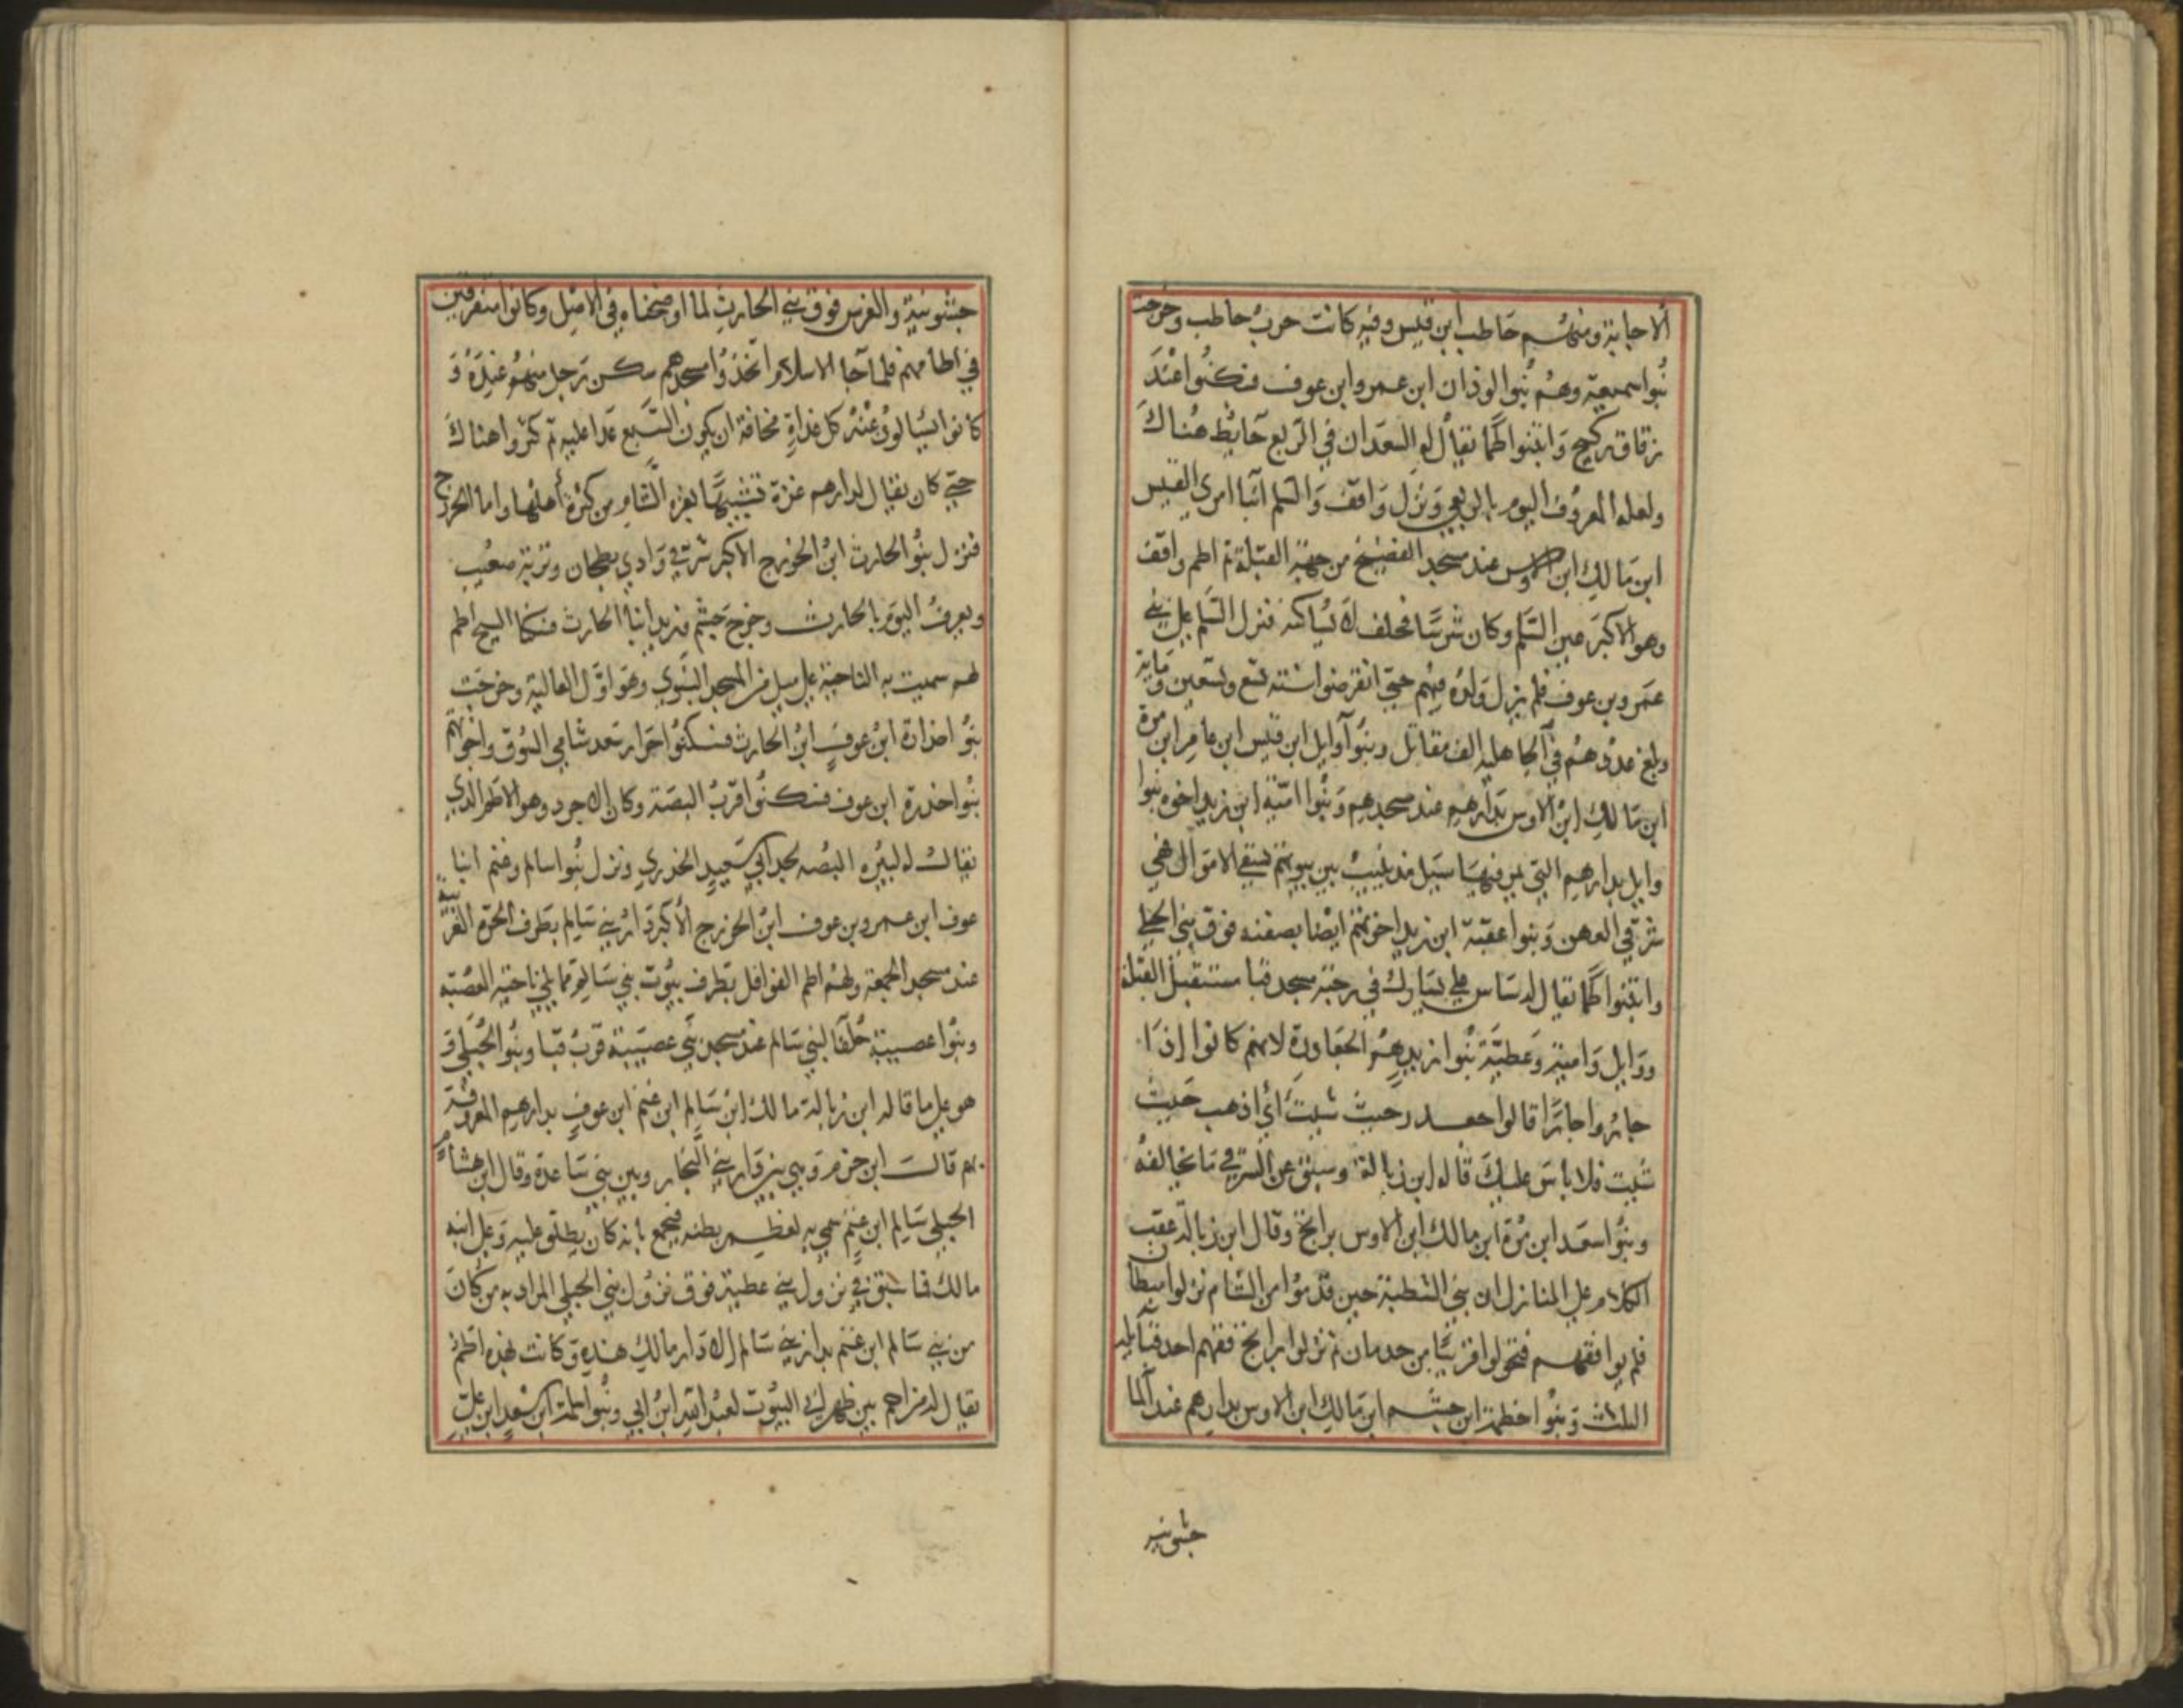 الاجابة ومنهم حاطب ابن قيس وفيه كانت حرب حاطب وخرجت
بنوا سميعه وهم بنوا لوذان ابن عمرو ابن عوف فسكنوا عند
زقاق ركيح وابتنوا اطما يقال له السعدان في الربع حايط هناك
ولعله المعروف اليوم بالربعي ونزل واقف والسلم ابنا امري القيس
ابن مالك ابن الاوس عند مسجد الفضيخ من جهة القبلة ثم اطم واقف
وهو الاكبر عين السلم وكان شرسا فحلف لا يساكنه فنزل السلم علي بني
عمرو بن عوف فلم يزل ولده فيهم حتي انقرضوا سنة تسع وتسعين وماية
وبلغ عددهم في الجاهليه الف مقاتل وبنوا وايل ابن قيس ابن عامر ابن مرة
ابن مالك ابن الاوس بدارهم عند مسجدهم وبنوا امية ابن زيد اخوه بنوا
وايل بدارهم التي يمر فيها سيل مذينيب بين بيوتهم تسقي الاموال فهي
شرقي العهن وبنوا عقبة ابن زيد اخوتهم ايضا بصفنه فوق بني الحبلي
وابتنوا اطما يقال له شاس علي يسارك في رحبة مسجد قبا مستقبل القبلة
ووايل وامية وعطية بنوا زيد هم الجعاودة لانهم كانوا اذا
جاروا جارا قالوا جعدر حيث شيت اي اذهب حيث
شيت فلا باس عليك قاله ابن زبالة وسبق عن الشرقي ما يخالفه
وبنوا سعد ابن مرة ابن مالك ابن الاوس براتج وقال ابن زبالة عقب
الكلام علي المنازل ان بني الشطبة حين قدموا من الشام نزلوا ميطان
فلم يوافقهم فتحولوا قريبا من جدمان ثم نزلوا براتج فهم احد قبايله
الثلاث وبنوا خطمة ابن جشم ابن مالك ابن الاوس بدارهم عند الما
جشونيه
جشونية والغرس فوق بني الحارث لما اوضحناه في الاصل وكانوا متفرقين
في اطامهم فلما جا الاسلام اتخذوا مسجدهم سكن رجل منهم عنده و
كانوا يسالون عنه كل غداة مخافة ان يكون السبع عدا عليه ثم كثروا هناك
حتي كان يقال لدارهم غزة تشبيها بغزه الشام من كثرة اهلها واما الخزرج
فنزل بنوا الحارث ابن الخزرج الاكبر شرقي وادي بطحان وتربة صعيب
ويعرف اليوم بالحارث وخرج جشم وزيد ابنا الحارث فسكنا السيح اطم
لهم سميت به الناحية علي ميل من المسجد النبوي وهو اول العالية وخرجت
بنوا خدارة ابن عوف ابن الحارث فسكنوا جرار سعد شامي السوق واخوتهم
بنوا خدرة ابن عوف فسكنوا قرب البصة وكان الاجرد وهو الاطم الذي
يقال له لبيره البصه لجد ابي سعيد الخدري ونزل بنوا سالم وغنم ابنا
عوف ابن عمرو بن عوف ابن الخزرج الاكبر دار بني سالم بطرف الحرة الغربية
عند مسجد الجمعة ولهم اطم القواقل بطرف بيوت بني سالم مما يلي ناحية العصبة
وبنوا عصيبة حلفا لبني سالم عند مسجد بني عصيبة قرب قبا وبنوا الحبلي و
هو علي ما قاله ابن زبالة مالك ابن سالم ابن غنم ابن عوف بدارهم المعروفة
بهم قال ابن حزم وهي بين دار بني النجار وبين بني ساعدة وقال ابن هشام
الحبلي سالم ابن غنم سمي به لعظم بطنه فيجمع بانه كان يطلق عليه وعلي ابنه
مالك فما سبق في نزول بني عطية فوق نزول بني الحبلي المراد به من كان
من بني سالم ابن غنم بدار بني سالم لا دار مالك هذه وكانت لهذه اطم
يقال له مزاحم بين ظهراني البيوت لعبد الله ابن ابي وبنوا سلمة ابن سعد ابن علي